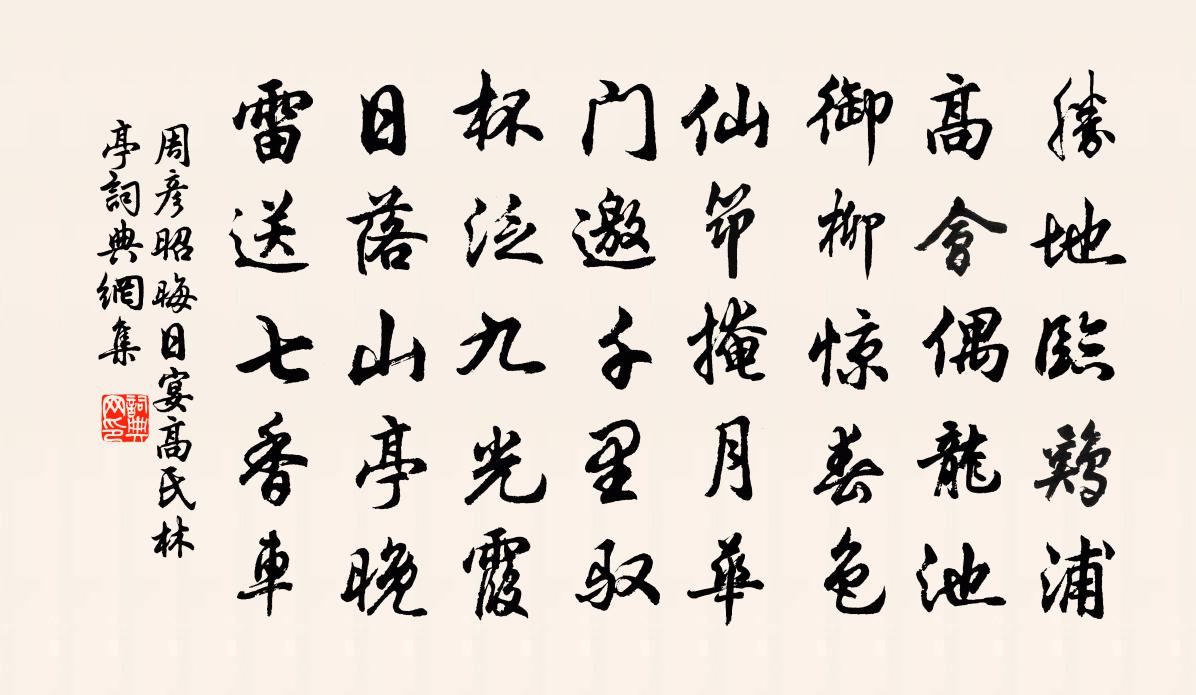 勝地臨鷄浦
高會偶龍池
御柳惊春色
仙筇掩月華
门邀千里驭
杯泛九光霞
日落山亭晚
雷送七香車
周彦昭晦日宴高氏林
亭詞典網集
詞典网印